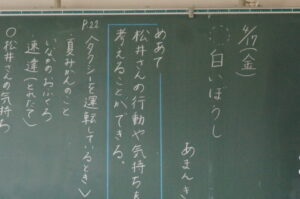 4/17(金)
白いぼうし
あまんき
めあて
松井さんの行動や気持ちを
考えることができる。
P.22
〈タクシーを運転しているとき〉
・夏みかんのこと
いなかのおふくろ
速達(とれたて)
○松井さんの気持ち